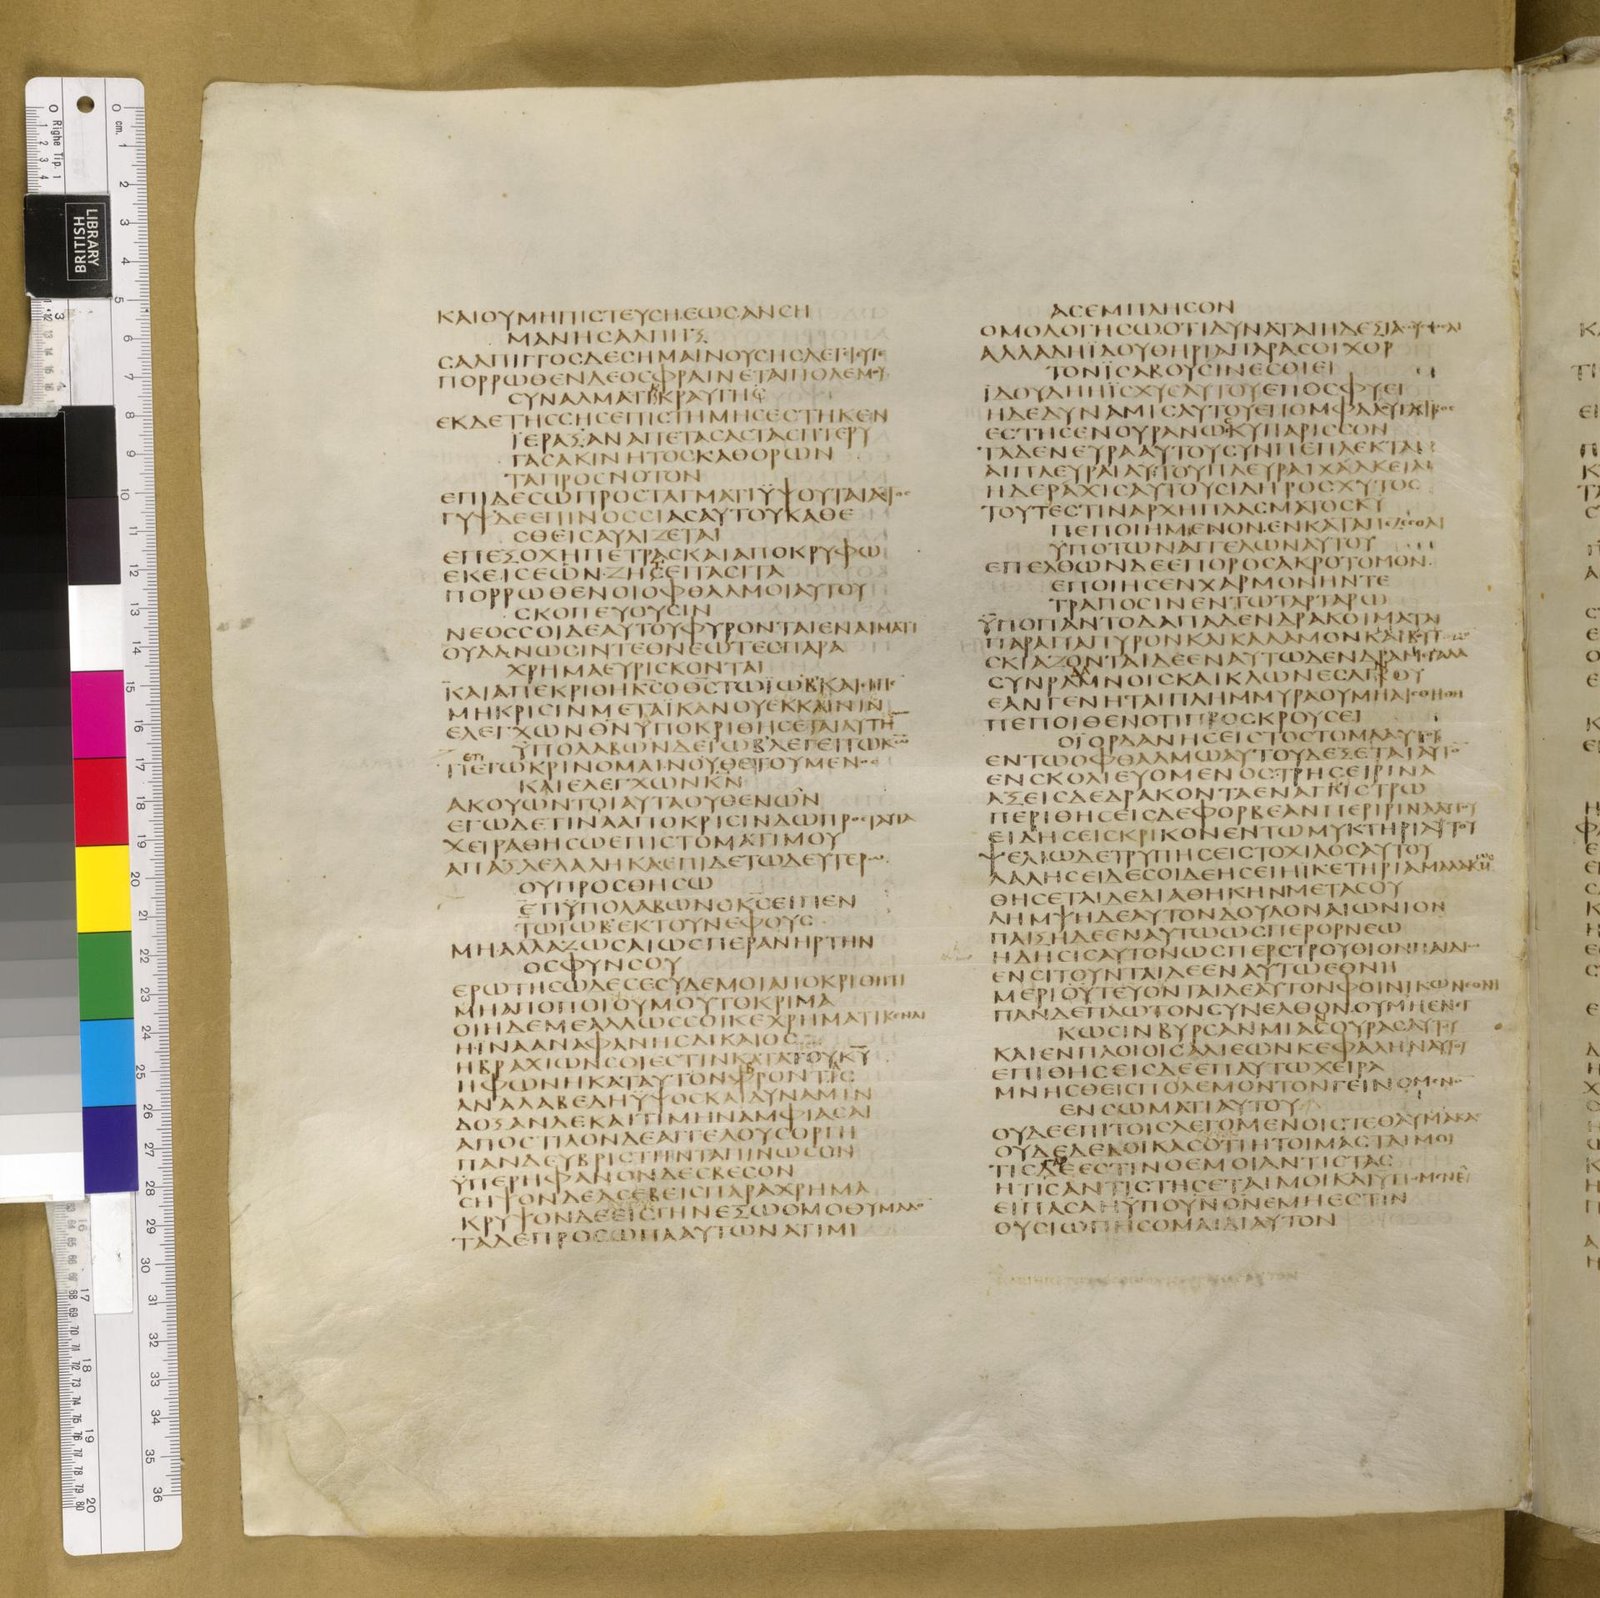 ΚΑΙΟΥΜΗΠΙCΤΕΥCΗΕΩCΑΝCΗ
ΜΑΝΗCΑΛΠΙΓΞ
CΑΛΠΙΓΓΟCΔΕCΗΜΑΙΝΟΥCΗCΛΕΓΕΙΕΥΓΕ
ΠΟΡΡΩΘΕΝΔΕΟCΦΡΑΙΝΕΤΑΙΠΟΛΕΜΟΥ
CΥΝΑΛΜΑΤΙΚΚΡΑΥΓΗC
ΕΚΔΕΤΗCCΗCΕΠΙCΤΗΜΗCΕCΤΗΚΕΝ
ΙΕΡΑΞΑΝΑΠΕΤΑCΑCΤΑCΠΤΕΡΥ
ΓΑCΑΚΙΝΗΤΟCΚΑΘΟΡΩΝ
ΤΑΠΡΟCΝΟΤΟΝ
ΕΠΙΔΕCΩΠΡΟCΤΑΓΜΑΤΙΫΨΟΥΤΑΙΑΕΤΟC
ΓΥΨΔΕΕΠΙΝΟCCΙΑCΑΥΤΟΥΚΑΘΕ
CΘΕΙCΑΥΛΙΖΕΤΑΙ
ΕΠΕΞΟΧΗΠΕΤΡΑCΚΑΙΑΠΟΚΡΥΦΩ
ΕΚΕΙCΕΩΝΖΗΤΕΙΤΑCΙΤΑ
ΠΟΡΡΩΘΕΝΟΙΟΦΘΑΛΜΟΙΑΥΤΟΥ
CΚΟΠΕΥΟΥCΙΝ
ΝΕΟCCΟΙΔΕΑΥΤΟΥΦΥΡΟΝΤΑΙΕΝΑΙΜΑΤΙ
ΟΥΔΑΝΩCΙΝΤΕΘΝΕΩΤΕCΠΑΡΑ
ΧΡΗΜΑΕΥΡΙCΚΟΝΤΑΙ
ΚΑΙΑΠΕΚΡΙΘΗΚCΟΘCΤΩΪΩΒΚΑΙΕΙΠΕ
ΜΗΚΡΙCΙΝΜΕΤΑΪΚΑΝΟΥΕΚΚΛΙΝΙΝ
ΕΛΕΓΧΩΝΘΝΫΠΟΚΡΙΘΗCΕΤΑΙΑΥΤΗ
ΫΠΟΛΑΒΩΝΔΕΪΩΒΛΕΓΕΙΤΩΚΩ
ΕΤΙ
ΤΙΕΓΩΚΡΙΝΟΜΑΙΝΟΥΘΕΤΟΥΜΕΝΟC
ΚΑΙΕΛΕΓΧΩΝΚΝ
ΑΚΟΥΩΝΤΟΙΑΥΤΑΟΥΘΕΝΩΝ
ΕΓΩΔΕΤΙΝΑΑΠΟΚΡΙCΙΝΔΩΠΡΟCΤΑΥΤΑ
ΧΕΙΡΑΘΗCΩΕΠΙCΤΟΜΑΤΙΜΟΥ
ΑΠΑΞΛΕΛΑΛΗΚΑΕΠΙΔΕΤΩΔΕΥΤΕΡΩ
ΟΥΠΡΟCΘΗCΩ
ΕΤΙΫΠΟΛΑΒΩΝΟΚCΕΙΠΕΝ
ΤΩΪΩΒΕΚΤΟΥΝΕΦΟΥC
ΜΗΑΛΛΑΖΩCΑΙΩCΠΕΡΑΝΗΡΤΗΝ
ΟCΦΥΝCΟΥ
ΕΡΩΤΗCΩΔΕCΕCΥΔΕΜΟΙΑΠΟΚΡΙΘΗΤΙ
ΜΗΑΠΟΠΟΙΟΥΜΟΥΤΟΚΡΙΜΑ
ΟΙΗΔΕΜΕΑΛΛΩCCΟΙΚΕΧΡΗΜΑΤΙΚΕΝΑΙ
ΗΪΝΑΑΝΑΦΑΝΗCΔΙΚΑΙΟC
ΗΒΡΑΧΙΩΝCΟΙΕCΤΙΝΚΑΤΑΤΟΥΚΥ
ΗΦΩΝΗΚΑΤΑΥΤΟΝΦΡΟΝΤΑC
ΑΝΑΛΑΒΕΔΗΫΨΟCΚΑΙΔΥΝΑΜΙΝ
ΔΟΞΑΝΔΕΚΑΙΤΙΜΗΝΑΜΦΙΑCΑΙ
ΑΠΟCΤΙΛΟΝΔΕΑΓΓΕΛΟΥCΟΡΓΗ
ΠΑΝΔΕΥΒΡΙCΤΗΝΤΑΠΙΝΩCΟΝ
ΫΠΕΡΗΦΑΝΟΝΔΕCΒΕCΟΝ
CΗΨΟΝΔΕΑCΕΒΕΙCΠΑΡΑΧΡΗΜΑ
ΚΡΥΨΟΝΔΕΕΙCΓΗΝΕΞΩΟΜΟΘΥΜΑΔΟ
ΤΑΔΕΠΡΟCΩΠΑΑΥΤΩΝΑΤΙΜΙ
ΑCΕΜΠΛΗCΟΝ
ΟΜΟΛΟΓΗCΩΟΤΙΔΥΝΑΤΑΙΗΔΕΞΙΑCΟΥCΩCΑΙ
ΑΛΛΑΔΗΪΔΟΥΘΗΡΙΑΠΑΡΑCΟΙΧΟΡ
ΤΟΝΙCΑΒΟΥCΙΝΕCΘΙΕΙ
ΪΔΟΥΔΗΗΪCΧΥCΑΥΤΟΥΕΠΟCΦΥΕΙ
ΗΔΕΔΥΝΑΜΙCΑΥΤΟΥΕΠΟΜΦΑΛΟΥΓΑCΤΡΟC
ΕCΤΗCΕΝΟΥΡΑΝΩCΚΥΠΑΡΙCCΟΝ
ΤΑΔΕΝΕΥΡΑΑΥΤΟΥCΥΝΠΕΠΛΕΚΤΑΙ
ΑΙΠΛΕΥΡΑΙΑΥΤΟΥΠΛΕΥΡΑΙΧΑΛΚΕΙΑΙ
ΗΔΕΡΑΧΙCΑΥΤΟΥCΙΔΗΡΟCΧΥΤΟC
ΤΟΥΤΕCΤΙΝΑΡΧΗΠΛΑCΜΑΤΟCΚΥ
ΠΕΠΟΙΗΜΕΝΟΝΕΝΚΑΤΑΠΑΙΖΕCΘΑΙ
ΥΠΟΤΩΝΑΓΓΕΛΩΝΑΥΤΟΥ
ΕΠΕΛΘΩΝΔΕΕΠΟΡΟCΑΚΡΟΤΟΜΟΝ
ΕΠΟΙΗCΕΝΧΑΡΜΟΝΗΝΤΕ
ΤΡΑΠΟCΙΝΕΝΤΩΤΑΡΤΑΡΩ
ΫΠΟΠΑΝΤΟΔΑΠΑΔΕΝΔΡΑΚΟΙΜΑΤΑΙ
ΠΑΡΑΠΑΠΥΡΟΝΚΑΙΚΑΛΑΜΟΝΚΑΙΒΟΥΤΟΜΟΝ
CΚΙΑΖΟΝΤΑΙΔΕΕΝΑΥΤΩΔΕΝΔΡΑΜΕΓΑΛΑ
CΥΝΡΑΜΝΟΙCΚΑΙΚΛΩΝΕCΑΓΡΟΥ
ΕΑΝΓΕΝΗΤΑΙΠΛΗΜΜΥΡΑΟΥΜΗΑΙCΘΗΘΗ
ΠΕΠΟΙΘΕΝΟΤΙΠΡΟCΚΡΟΥCΕΙ
ΟΪΟΡΔΑΝΗCΕΙCΤΟCΤΟΜΑΑΥΤΟΥ
ΕΝΤΩΟΦΘΑΛΜΩΑΥΤΟΥΔΕΞΕΤΑΙΑΥΤΟ
ΕΝCΚΟΛΙΕΥΟΜΕΝΟCΤΡΗCΕΙΡΙΝΑ
ΑΞΕΙCΔΕΔΡΑΚΟΝΤΑΕΝΑΓΚΙCΤΡΩ
ΠΕΡΙΘΗCΕΙCΔΕΦΟΡΒΕΑΝΠΕΡΙΡΙΝΑΑΥΤΟΥ
ΕΙΔΗCΕΙCΚΡΙΚΟΝΕΝΤΩΜΥΚΤΗΡΙΑΥΤΟΥ
ΨΕΛΙΩΔΕΤΡΥΠΗCΕΙCΤΟΧΙΛΟCΑΥΤΟΥ
ΛΑΛΗCΕΙΔΕCΟΙΔΕΗCΕΙΗΙΚΕΤΗΡΙΑΜΑΛΑΚΩC
ΘΗCΕΤΑΙΔΕΔΙΑΘΗΚΗΝΜΕΤΑCΟΥ
ΛΗΜΨΗΔΕΑΥΤΟΝΔΟΥΛΟΝΑΙΩΝΙΟΝ
ΠΑΙΞΗΔΕΕΝΑΥΤΩΩCΠΕΡΟΡΝΕΩ
ΗΔΗCΙCΑΥΤΟΝΩCΠΕΡCΤΡΟΥΘΙΟΝΠΑΙΔΙΩ
ΕΝCΙΤΟΥΝΤΑΙΔΕΕΝΑΥΤΩΕΘΝΗ
ΜΕΡΙΟΥΤΕΥΟΝΤΑΙΔΕΑΥΤΟΝΦΟΙΝΙΚΩΝΕΘΝΗ
ΠΑΝΔΕΠΛΩΤΟΝCΥΝΕΛΘΟΝΟΥΜΗΕΝΕΓ
ΚΩCΙΝΒΥΡCΑΝΜΙΑCΟΥΡΑCΑΥΤΟΥ
ΚΑΙΕΝΠΛΟΙΟΙCΑΛΙΕΩΝΚΕΦΑΛΗΝΑΥΤΟΥ
ΕΠΙΘΗCΕΙCΔΕΕΠΑΥΤΩΧΕΙΡΑ
ΜΝΗCΘΕΙCΠΟΛΕΜΟΝΤΟΝΓΕΙΝΟΜΕΝΟ
ΕΝCΩΜΑΤΙΑΥΤΟΥ
ΟΥΔΕΕΠΙΤΟΙCΛΕΓΟΜΕΝΟΙCΤΕΘΑΥΜΑΚΑC
ΟΥΔΕΔΕΔΟΙΚΑCΟΤΙΗΤΟΙΜΑCΤΑΙΜΟΙ
ΤΙCΓΑΡΕCΤΙΝΟΕΜΟΙΑΝΤΙCΤΑC
ΗΤΙCΑΝΤΙCΤΗCΕΤΑΙΜΟΙΚΑΙΥΠΟΜΕΝΕΙ
ΕΙΠΑCΑΗΫΠΟΥΝΟΝΕΜΗΕCΤΙΝ
ΟΥCΙΩΠΗCΟΜΑΙΔΙΑΥΤΟΝ
BRITISH
LIBRARY